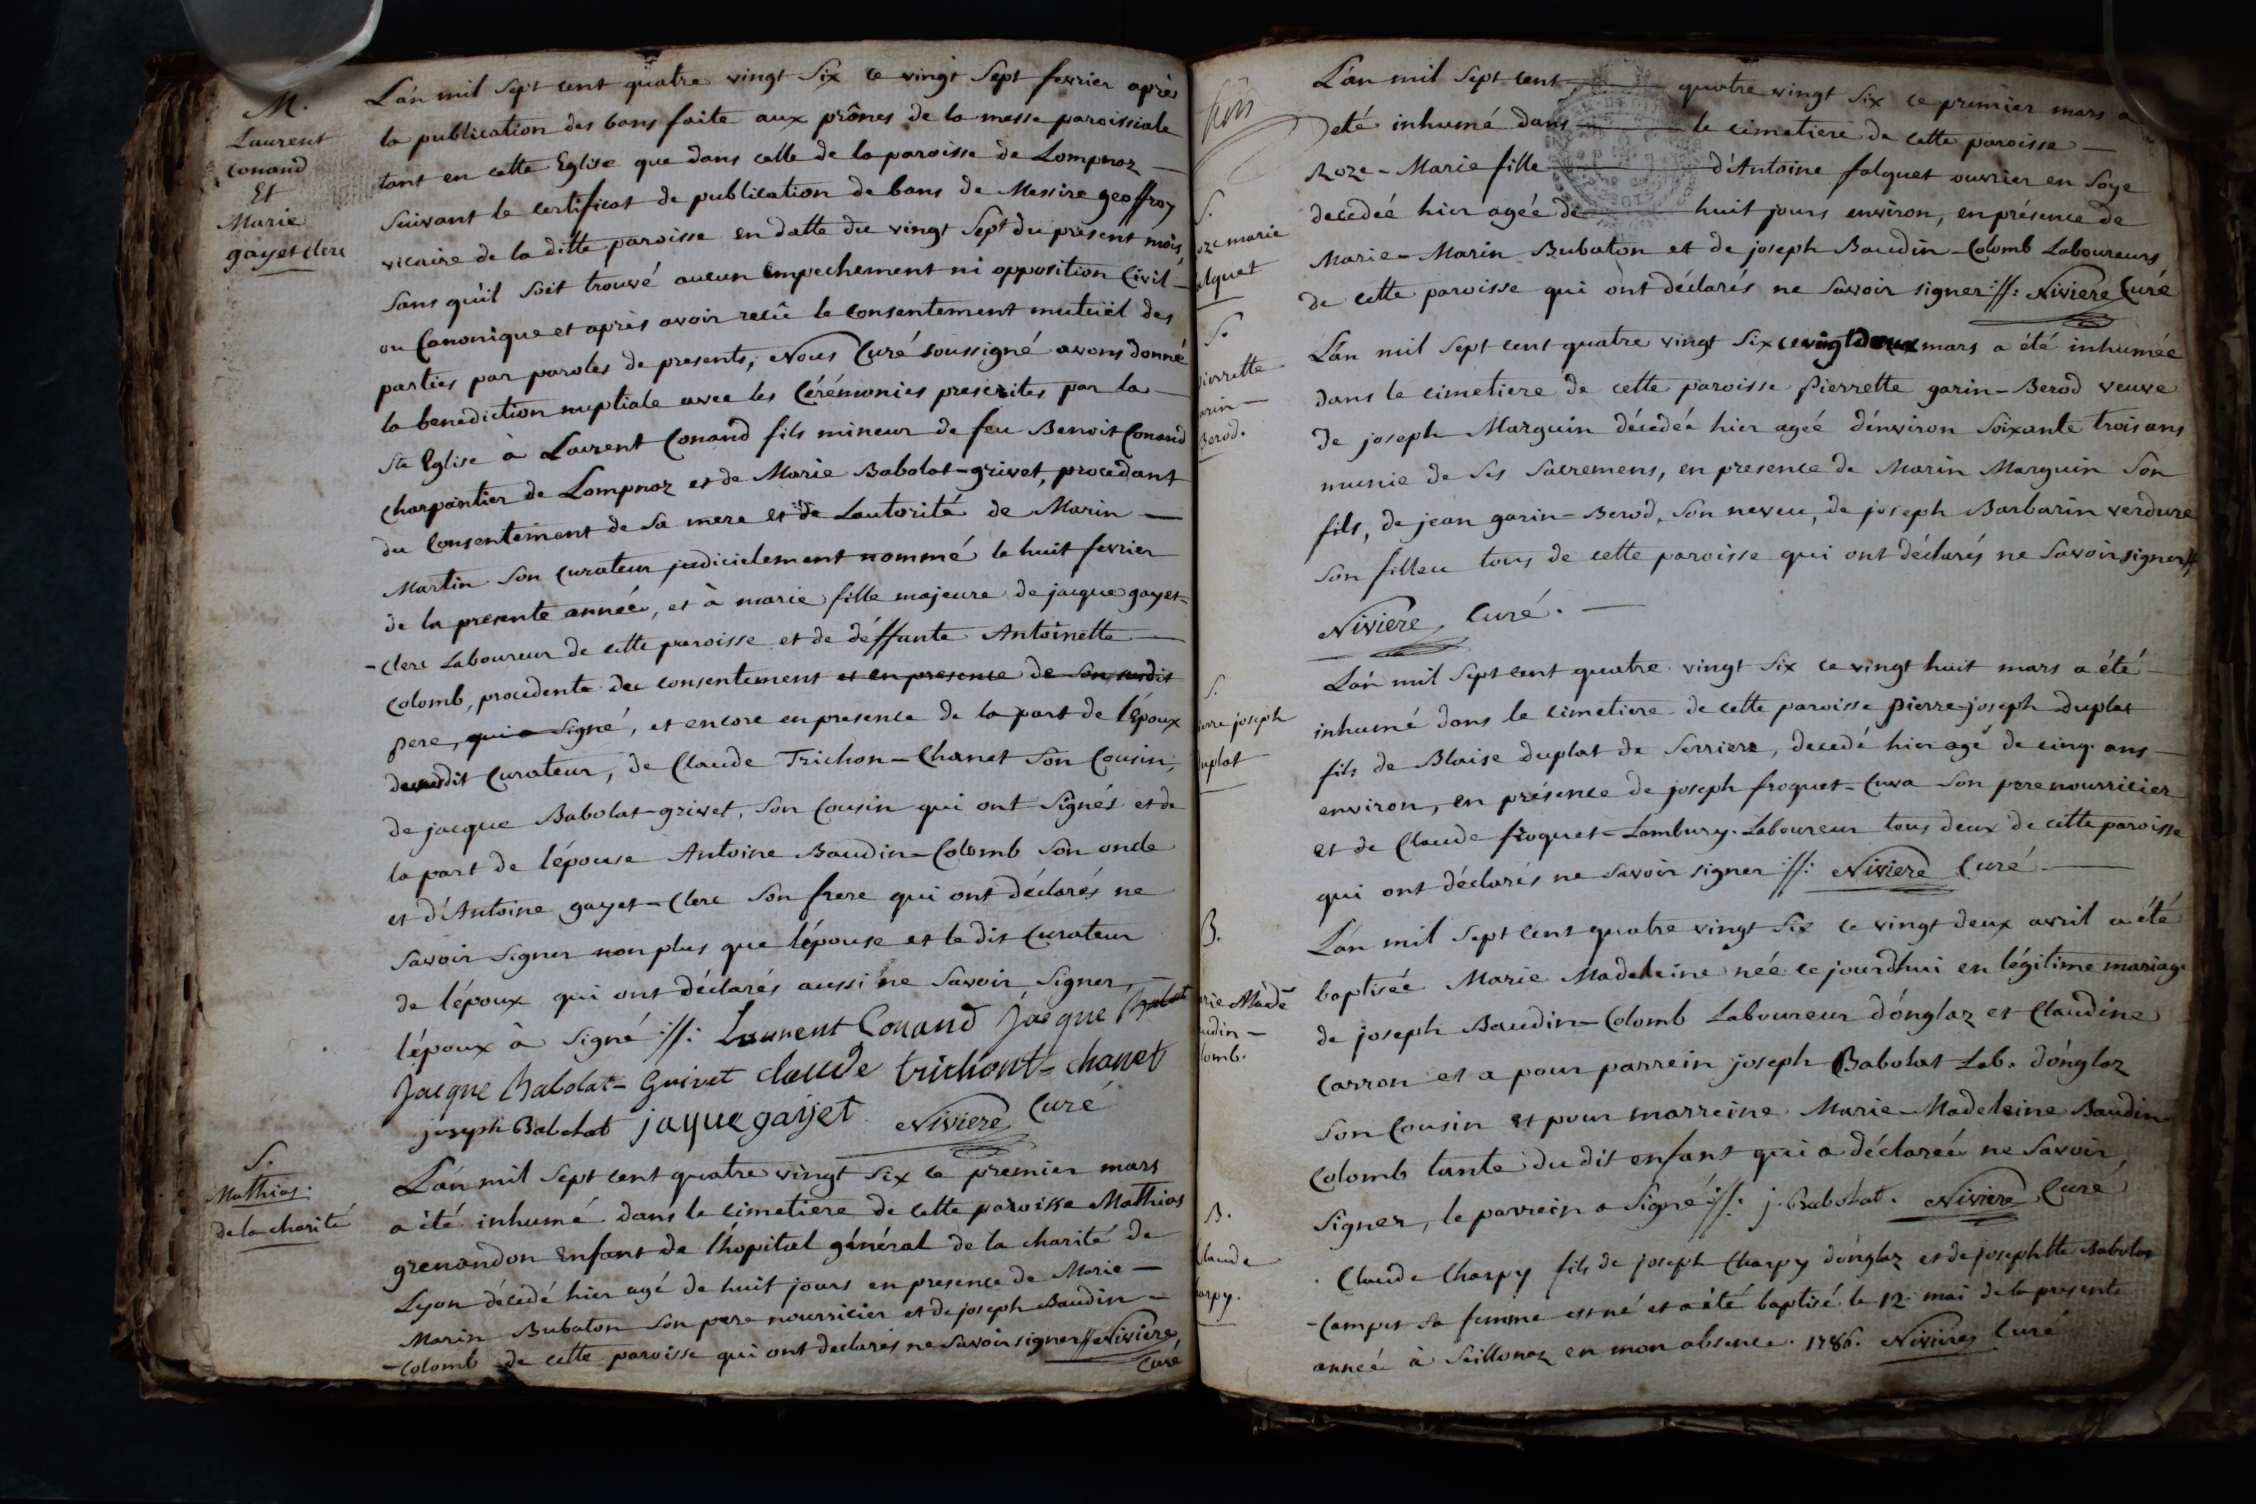 M.
Laurent
Conand
Et
Marie
gayet Clerc
L'an mil sept cent quatre vingt six ce vingt sept fevrier après
la publication des bans faite aux prônes de la messe paroissiale
tant en cette Eglise que dans celle de la paroisse de Lompnaz —
suivant le certificat de publication de bans de Messire geoffroy
vicaire de la ditte paroisse en datte du vingt sept du present mois,
sans qu'il soit trouvé aucun empechement ni opposition Civil —
ou Canonique et après avoir recû le consentement mutuël des
parties par paroles de presents, Nous Curé soussigné avons donné
la benediction nuptiale avec les Cérémonies prescrites par la —
Ste Eglise à Laurent Conand fils mineur de feu Benoit Conand
Charpantier de Lompnaz et de Marie Babolat-grivet, procedant
du Consentement de sa mere et de Lautorité de Marin —
Martin son Curateur judicielement nommé le huit fevrier
de la presente année, et à marie fille majeure de jacque gayet=
-Clerc Laboureur de cette paroisse et de déffunte Antoinette —
Colomb, procedente du consentement et en presence de son susdit
pere, qui a signé, et encore en presence de la part de l'époux
du susdit Curateur, de Claude Trichon-Chanet son Cousin,
de jacque Babolat-grivet, son Cousin qui ont signés et de
la part de l'épouse Antoine Baudin-Colomb son oncle
et d'Antoine gayet-Clerc son frere qui ont déclarés ne
savoir signer non plus que l'épouse et le dit Curateur
de l'époux qui ont déclarés aussi ne savoir signer, —
l'époux à signé ://: Laurent Conand Jacque
Jacque Babolat-Grivet claude trichont-chanet
joseph Babolat jaque gayet Niviere Curé
S.
Mathias.
de la charité
L'an mil sept cent quatre vingt six ce premier mars
a été inhumé dans le cimetiere de cette paroisse Mathias
grenandon enfant de l'hopital général de la charité de
Lyon décédé hier agé de huit jours en presence de Marie —
Marin Bubaton son pere nourricier et de joseph Baudin —
-Colomb de cette paroisse qui ont declarés ne savoir signer // Niviere,
Curé
L'an mil sept cent quatre vingt six ce premier mars a
eté inhumé dans le cimetiere de cette paroisse —
Roze-Marie fille d'Antoine falquet ouvrier en soye
decedeé hier agée de huit jours environ, en présence de
Marie-Marin Bubaton et de joseph Baudin-Colomb Laboureurs
de cette paroisse qui ont déclarés ne savoir signer ://: Niviere Curé
S.
oze marie
alquet
L'an mil sept cent quatre vingt six ce vingt deux mars a été inhumée
dans le cimetiere de cette paroisse Pierrette garin-Berod veuve
de joseph Marguin décedée hier ageé d'énviron soixante trois ans
munie de ses sacremens, en presence de Marin Marguin son
fils, de jean garin-Berod, son neveu, de joseph Barbarin verdure
son filleu tous de cette paroisse qui ont déclarés ne savoir signer //
Niviere, Curé. —
S.
pierrette
arin —
Berod.
L'an mil sept cent quatre vingt six ce vingt huit mars a été —
inhumé dans le cimetiere de cette paroisse pierre joseph duplat
fils de Blaise duplat de serriere, decedé hier agé de cinq ans —
environ, en présence de joseph froquet-Cuva son pere nourricier
et de Claude froquet-Lambury. Laboureur tous deux de cette paroisse
qui ont déclarés ne savoir signer ://: Niviere Curé —
S.
ierre joseph
uplat
L'an mil sept cent quatre vingt six ce vingt deux avril a été
baptiseé Marie Madeleine née ce jourd'hui en légitime mariage
de joseph Baudin-Colomb Laboureur d'ónglaz et Claudine
Carron et a pour parrein joseph Babolat Lab. d'ónglaz
son Cousin et pour marreine Marie-Madeleine Baudin
Colomb tante du dit enfant qui a déclareé ne savoir
signer, le parrein a signé ://: j. Babolat. Niviere, Curé
B.
rie Made
udin —
lomb.
Claude Charpy fils de joseph Charpy d'onglaz et de josephtte Babolat
-Campet sa femme est né et a été baptisé le 12 mai de la presente
anneé à Seillonaz en mon absence. 1786. Niviere, Curé
B.
Claude
arpy.